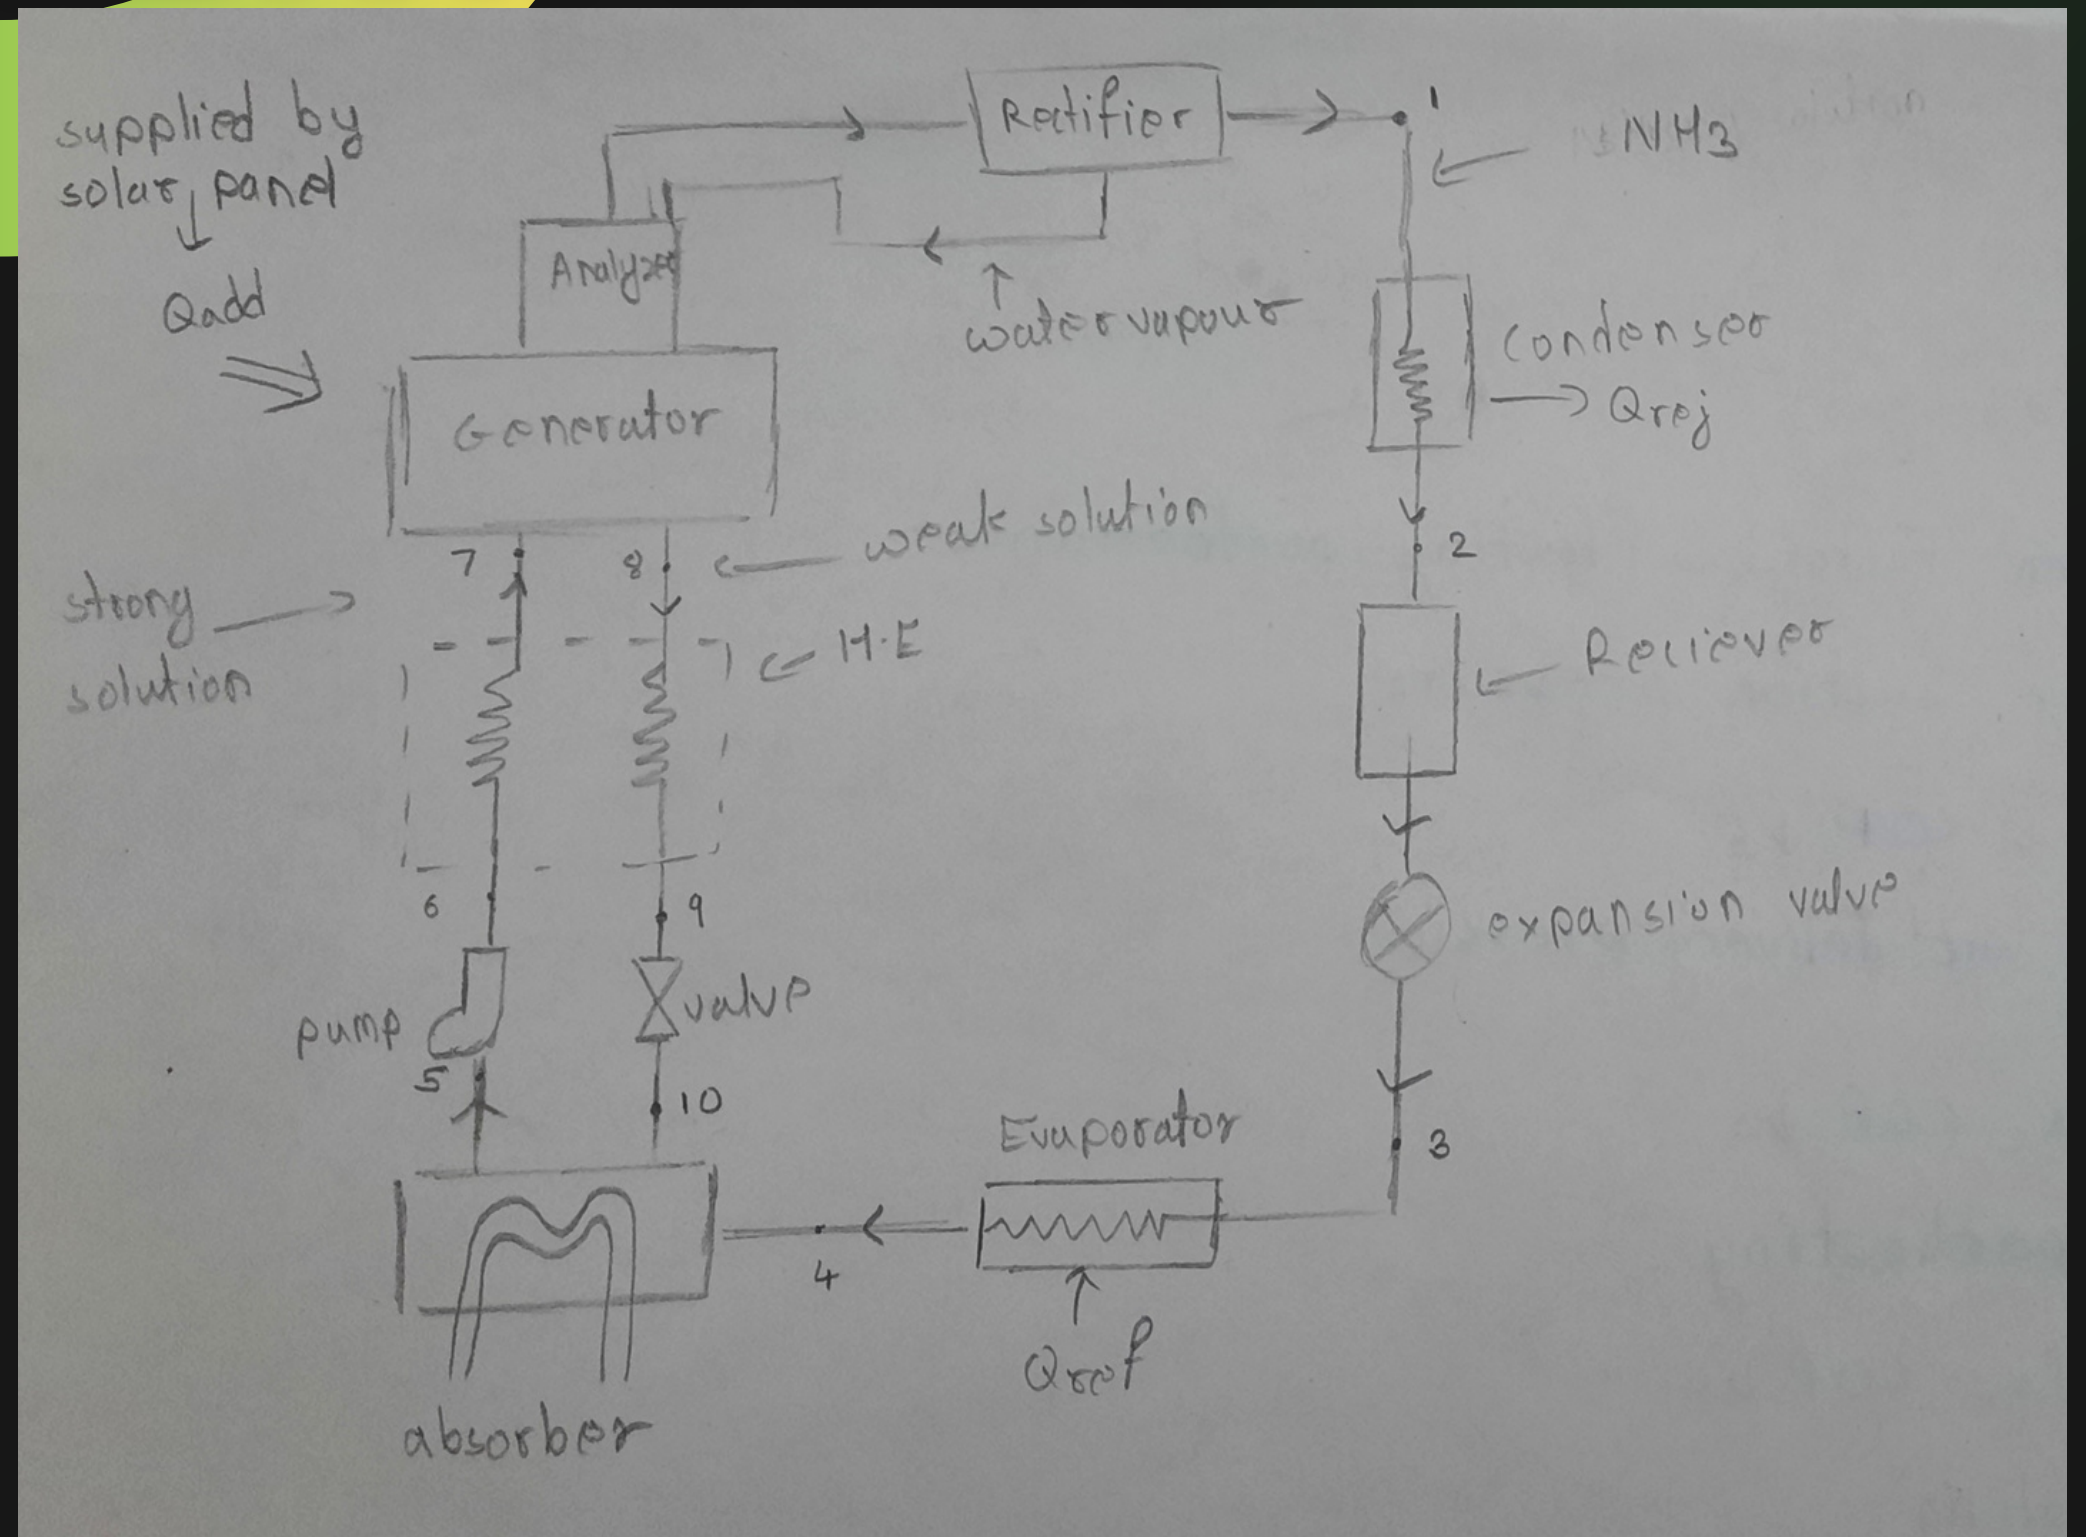 supplied by
solar panel
Qadd
Rectifier
1
NH3
Analyzer
water vapour
Condenser
Qrej
Generator
7
8
weak solution
2
strong
solution
H.E
Reciever
6
9
expansion valve
pump
valve
5
10
3
Evaporator
4
Qref
absorber